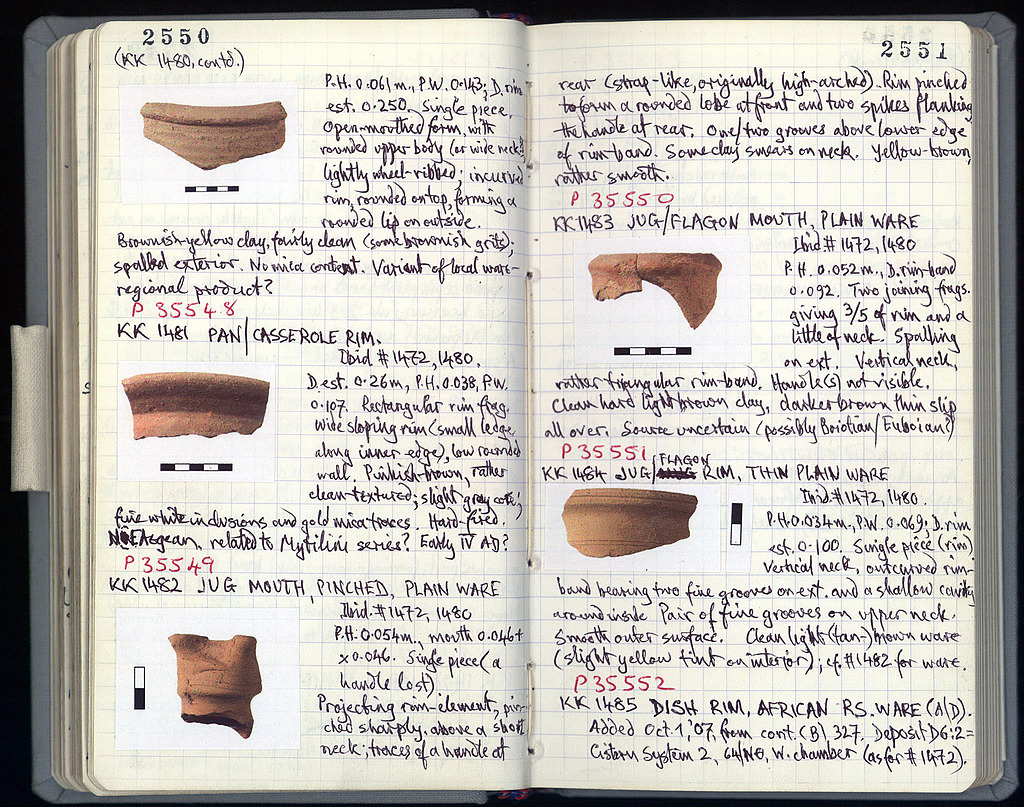 2550
(KK 1480, contd.)
P.H. 0.061 m., P.W. 0.143; D. rim
est. 0.250. Single piece.
Open-mouthed form, with
rounded upper body (or wide neck?)
lightly wheel-ribbed; incurved
rim, rounded on top, forming a
rounded lip on outside.
Brownish-yellow clay, fairly clean (some brownish grits);
spalled exterior. No mica content. Variant of local ware-
regional product?
P 35548
KK 1481 PAN/CASSEROLE RIM.
Ibid # 1472, 1480.
D. est. 0.26m, P.H. 0.038, P.W.
0.107. Rectangular rim frag.
Wide sloping rim (small ledge
along inner edge), low rounded
wall. Pinkish-brown, rather
clean-textured; slight grey core;
fine white inclusions and gold mica traces. Hard-fired.
Aegean, related to Mytilini series? Early IV AD?
P 35549
KK 1482 JUG MOUTH, PINCHED, PLAIN WARE
Ibid. # 1472, 1480
P.H. 0.054m., mouth 0.046+
x 0.046. Single piece (a
handle lost)
Projecting rim-element, pin-
ched sharply, above a short
neck; traces of a handle at
2551
rear (strap-like, originally high-arched). Rim pinched
to form a rounded lobe at front and two spikes flanking
the handle at rear. One/two grooves above lower edge
of rim-band. Some clay smears on neck. Yellow-brown,
rather smooth.
P 35550
KK 1483 JUG/FLAGON MOUTH, PLAIN WARE
Ibid # 1472, 1480
P.H. 0.052m., D. rim-band
0.092. Two joining frags.
giving 3/5 of rim and a
little of neck. Spalling
on ext. Vertical neck,
rather triangular rim-band. Handle(s) not visible.
Clean hard light brown clay, darker brown thin slip
all over. Source uncertain (possibly Boiotian/Euboian?)
P 35551
KK 1484 JUG/FLAGON RIM, THIN PLAIN WARE
Ibid. # 1472, 1480.
P.H. 0.034m., P.W. 0.069; D. rim
est. 0.100. Single piece (rim)
Vertical neck, outcurved rim-
band bearing two fine grooves on ext. and a shallow cavity
around inside. Pair of fine grooves on upper neck.
Smooth outer surface. Clean light (tan-) brown ware
(slight yellow tint on interior); cf. #1482 for ware.
P 35552
KK 1485 DISH RIM, AFRICAN R.S. WARE (A/D).
Added Oct. 1, '07, from cont. (B) 327. Deposit D6:2 =
Cistern System 2, 64/NO, W. chamber (as for # 1472).